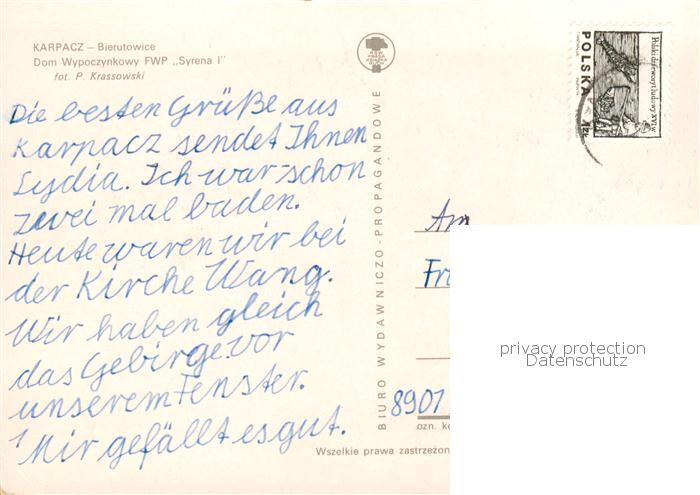 KARPACZ – Bierutowice
Dom Wypoczynkowy FWP „Syrena I"
fot. P. Krassowski
Die besten Grüße aus
Karpacz sendet Ihnen
Lydia. Ich war schon
zwei mal baden.
Heute waren wir bei
der Kirche Wang.
Wir haben gleich
das Gebirge vor
unserem Fenster.
Mir gefällt es gut.
BIURO WYDAWNICZO-PROPAGANDOWE
POLSKA
1 ZŁ
Polski drzeworyt ludowy XVI w.
An
Fr
8901
ozn. ko
Wszelkie prawa zastrzeżon
privacy protection
Datenschutz